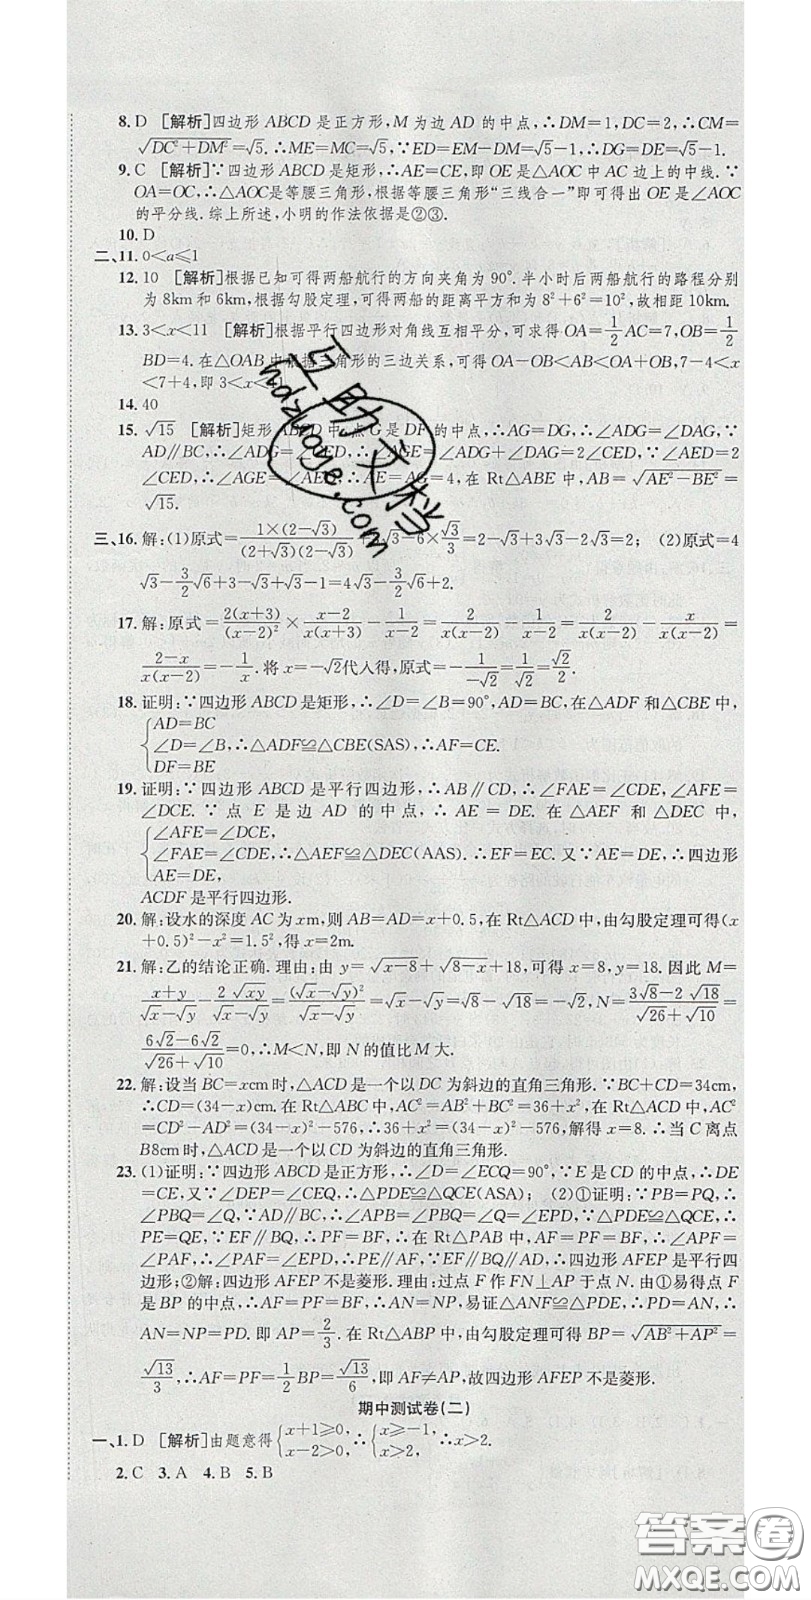 8. D [解析]四边形ABCD是正方形,M为边AD的中点,∴DM=1,DC=2,∴CM=
√(DC²+DM²)=√5.∴ME=MC=√5.∵ED=EM-DM=√5-1,∴DG=DE=√5-1.
9. C [解析]∵四边形ABCD是矩形,∴AE=CE,即OE是△AOC中AC边上的中线.∵
OA=OC,∴△AOC是等腰三角形,根据等腰三角形“三线合一”即可得出OE是∠AOC
的平分线.综上所述,小明的作法依据是②③.
10. D
二、11. 0<a≤1
12. 10 [解析]根据已知可得两船航行的方向夹角为90°.半小时后两船航行的路程分别
为8km和6km,根据勾股定理,可得两船的距离平方和为8²+6²=10²,故相距10km.
13. 3<x<11 [解析]根据平行四边形对角线互相平分,可求得OA=1/2AC=7,OB=1/2
BD=4.在△OAB中根据三角形的三边关系,可得OA-OB<AB<OA+OB,7-4<x
<7+4,即3<x<
14. 40
15. √15 [解析]矩形ABCD中,点G是DF的中点,∴AG=DG,∴∠ADG=∠DAG,∵
AD∥BC,∴∠ADG=∠CED,∴∠AGE=∠ADG+∠DAG=2∠CED,∵∠AED=2
∠CED,∴∠AGE=∠AED,∴AE=AG=4,在Rt△ABE中,AB=√(AE²-BE²)=
√15.
三、16. 解:(1)原式=1×(2-√3)/(2+√3)(2-√3)+3√3-6×√3/3=2-√3+3√3-2√3=2;(2)原式=4
√3-3/2√6+3-√3+√3-1=4√3-3/2√6+2.
17. 解:原式=2(x+3)/(x-2)²×(x-2)/x(x+3)-1/(x-2)=2/x(x-2)-1/(x-2)=2/x(x-2)-x/x(x-2)=
(2-x)/x(x-2)=-1/x.将x=-√2代入得,原式=-1/(-√2)=1/√2=√2/2.
18. 证明:∵四边形ABCD是矩形,∴∠D=∠B=90°,AD=BC,在△ADF和△CBE中,
{AD=BC
∠D=∠B,∴△ADF≌△CBE(SAS),∴AF=CE.
DF=BE
19. 证明:∵四边形ABCD是平行四边形,∴AB∥CD,∴∠FAE=∠CDE,∠AFE=
∠DCE.∵点E是边AD的中点,∴AE=DE.在△AEF和△DEC中,
{∠AFE=∠DCE,
∠FAE=∠CDE,∴△AEF≌△DEC(AAS).∴EF=EC.又∵AE=DE,∴四边形
AE=DE,
ACDF是平行四边形.
20. 解:设水的深度AC为xm,则AB=AD=x+0.5,在Rt△ACD中,由勾股定理可得(x
+0.5)²-x²=1.5²,得x=2m.
21. 解:乙的结论正确.理由:由y=√(x-8)+√(8-x)+18,可得x=8,y=18.因此M=
(x+y)/(√x-√y)-2√xy/(√x-√y)=(√x-√y)²/(√x-√y)=√x-√y=√8-√18=-√2,N=(3√8-2√18)/(√26+√10)=
(6√2-6√2)/(√26+√10)=0,∴M<N,即N的值比M大.
22. 解:设当BC=xcm时,△ACD是一个以DC为斜边的直角三角形.∵BC+CD=34cm,
∴CD=(34-x)cm.在Rt△ABC中,AC²=AB²+BC²=36+x²,在Rt△ACD中,AC²
=CD²-AD²=(34-x)²-576,∴36+x²=(34-x)²-576,解得x=8.∴当C离点
B8cm时,△ACD是一个以CD为斜边的直角三角形.
23. (1)证明:∵四边形ABCD是正方形,∴∠D=∠ECQ=90°,∵E是CD的中点,∴DE
=CE,又∵∠DEP=∠CEQ,∴△PDE≌△QCE(ASA);(2)①证明:∵PB=PQ,∴
∠PBQ=∠Q,∵AD∥BC,∴∠APB=∠PBQ=∠Q=∠EPD,∵△PDE≌△QCE,∴
PE=QE,∵EF∥BQ,∴PF=BF,∴在Rt△PAB中,AF=PF=BF,∴∠APF=
∠PAF,∴∠PAF=∠EPD,∴PE∥AF,∵EF∥BQ∥AD,∴四边形AFEP是平行四
边形;②解:四边形AFEP不是菱形.理由:过点F作FN⊥AP于点N.由①易得点F
是BP的中点,∴AF=PF=BF.∴AN=NP,易证△ANF≌△PDE,∴PD=AN,∴
AN=NP=PD.即AP=2/3.在Rt△ABP中,由勾股定理可得BP=√(AB²+AP²)=
√13/3,∴AF=PF=1/2BP=√13/6,即AF≠AP,故四边形AFEP不是菱形.
期中测试卷(二)
一、1. D [解析]由题意得{x+1≥0,x-2>0,∴{x≥-1,x>2,∴x>2.
2. C 3. A 4. B 5. B
互助文档
hdzuoye.com
答案圈
MXQE.COM